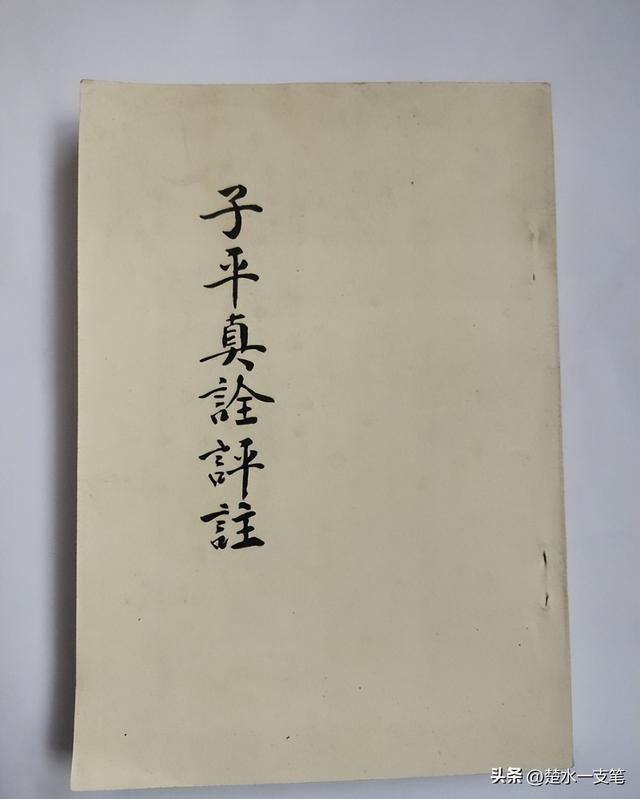 子平真詮評註
头条 @楚水一支笔